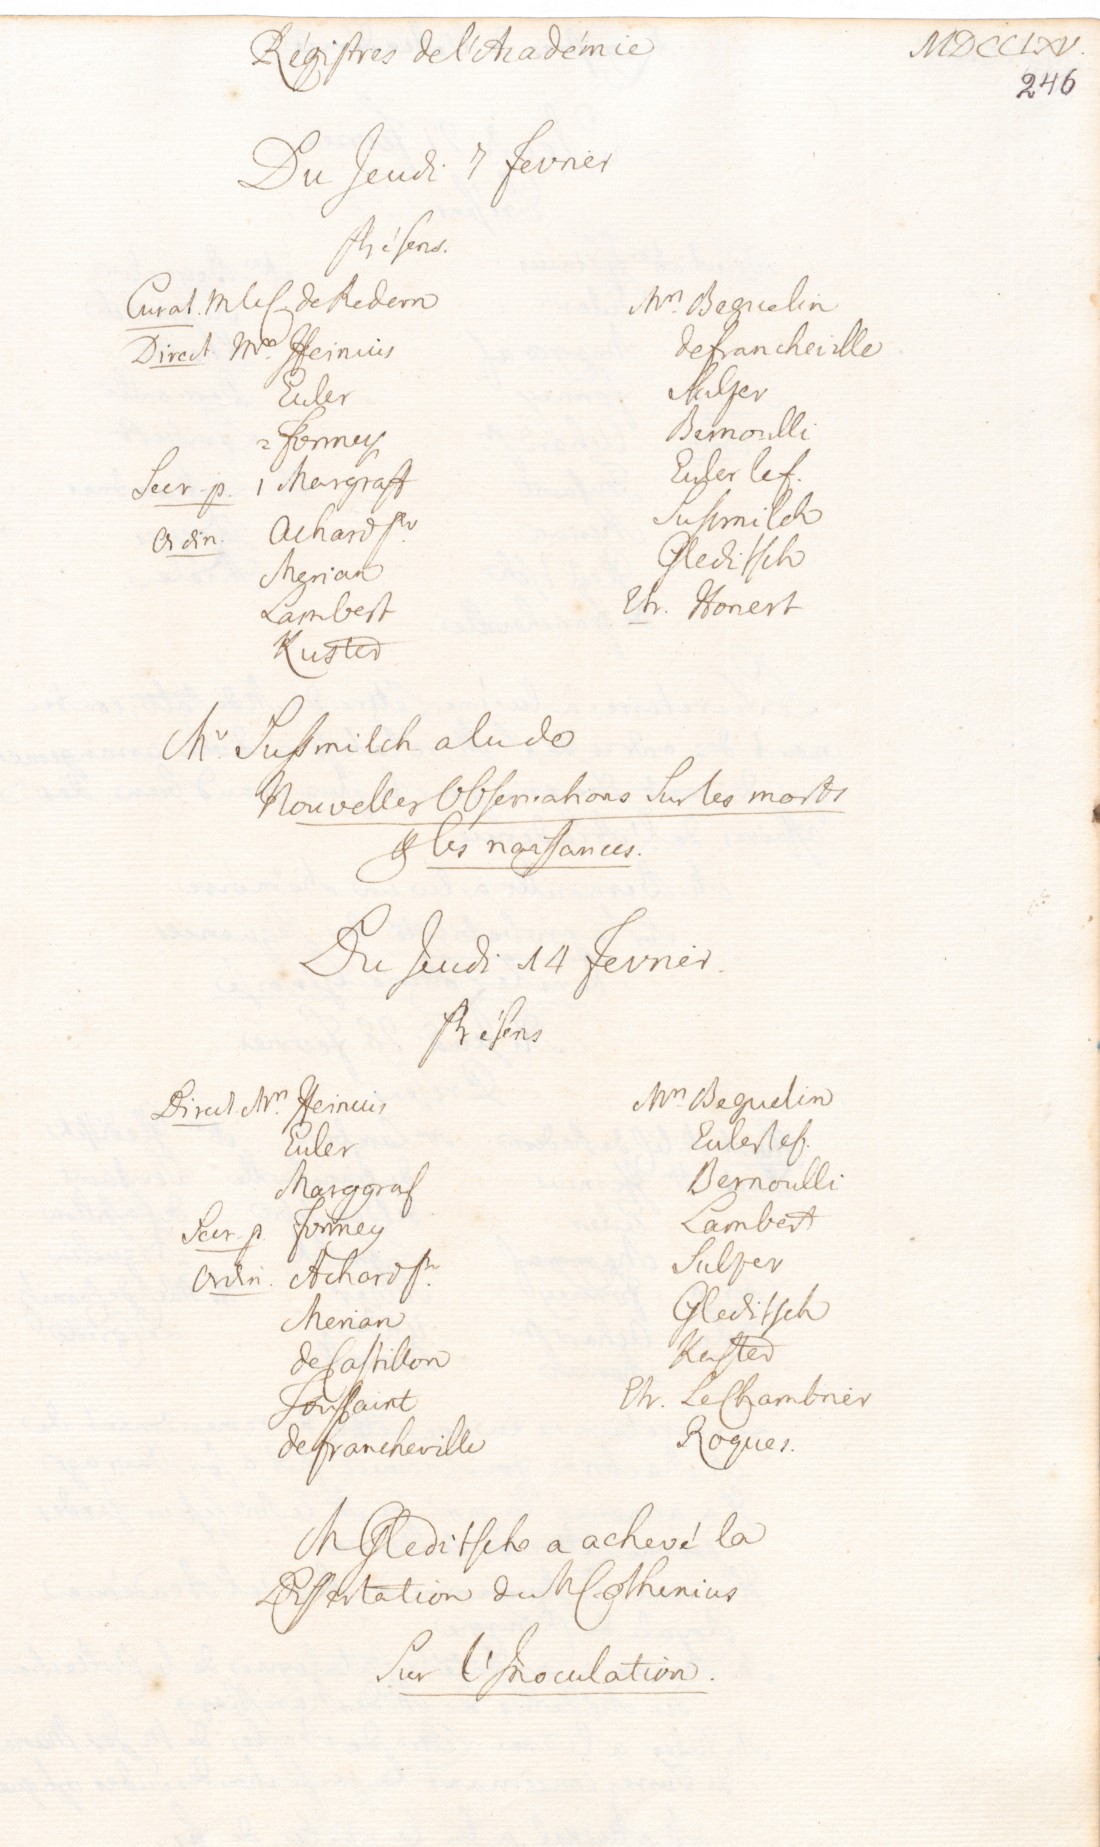 Régistres de l'Académie
MDCCLXV.
246
Du Jeudi 7 fevrier
Présens.
Curat. M le C. de Redern
Direct. Mrs. Heinius
Euler
2 Formey
Secr. p. 1 Margraff
Ordin. Achard sr.
Merian
Lambert
Kuster
Mrs. Beguelin
de francheville
Sulzer
Bernoulli
Euler le f.
Sussmilch
Gleditsch
Etr. Honert
Mr. Sussmilch a lu de
Nouvelles Observations sur les morts
& les naissances.
Du Jeudi 14 fevrier.
Présens
Direct. Mrs. Heinius
Euler
Marggraf
Secr. p. Formey
Ordin. Achard sr.
Merian
de Castillon
Toussaint
de francheville
Mrs. Beguelin
Euler le f.
Bernoulli
Lambert
Sulzer
Gleditsch
Kuster
Etr. Le Chambrier
Roques.
M Gleditsch a achevé la
Dissertation du M Cothenius
Sur l'Inoculation.